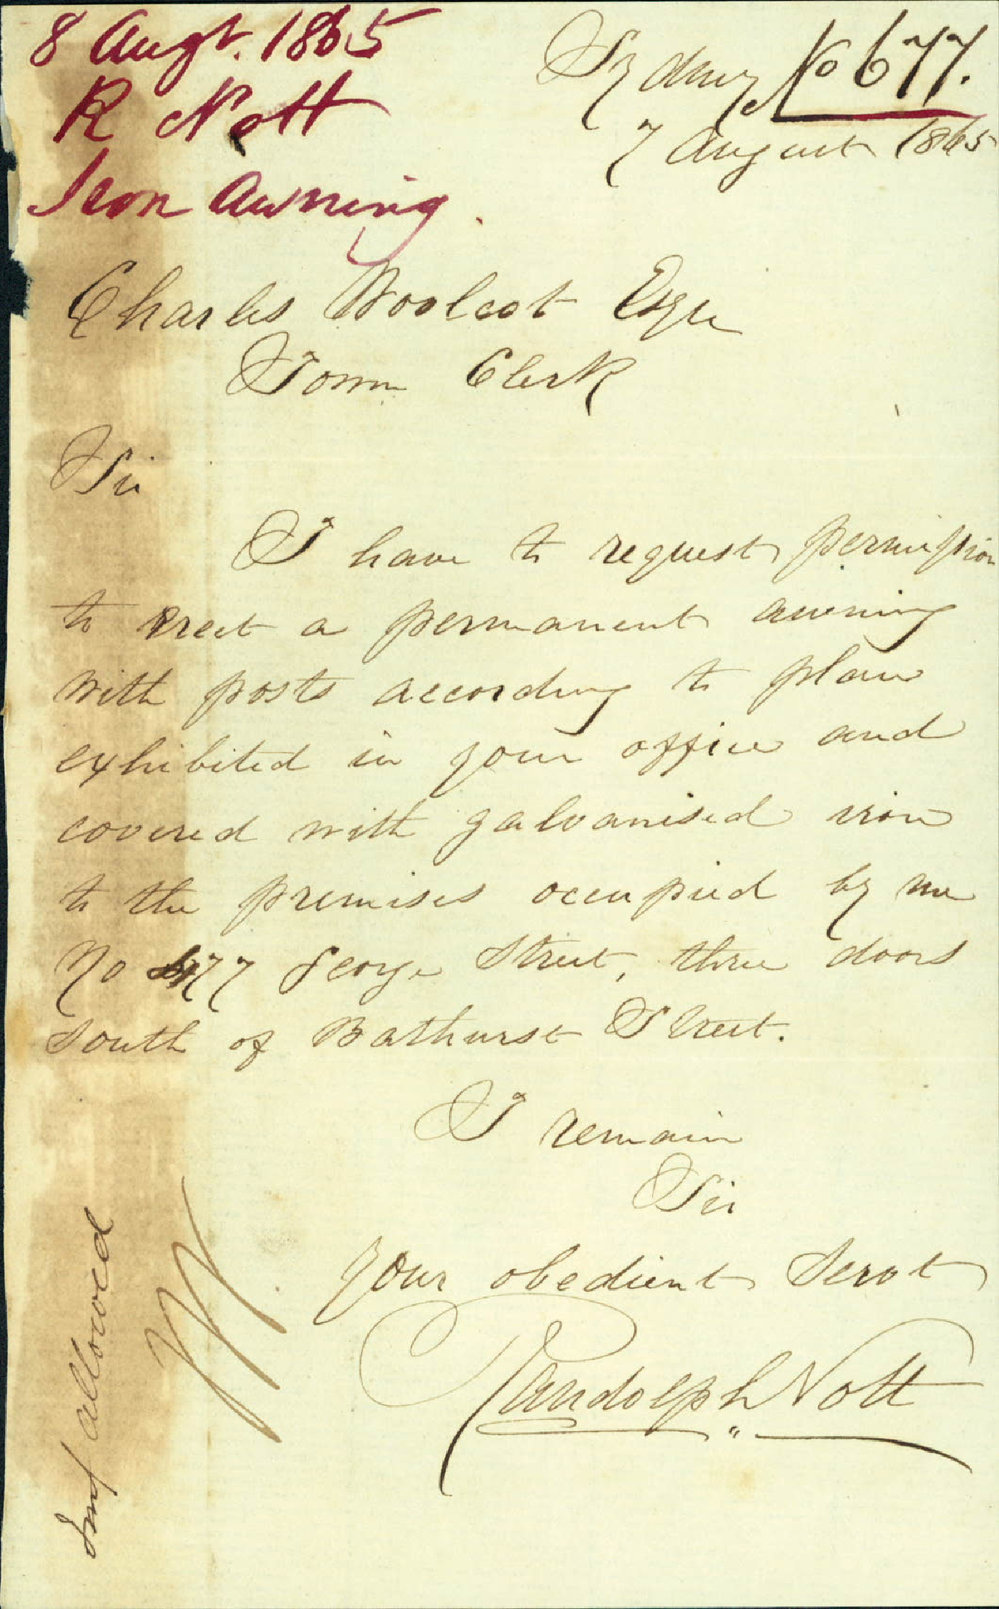 8 Augt. 1865
R Nott
Iron Awning.
No 677.
Sydney
7 August 1865
Charles Woolcot Esqre
Town Clerk
Sir
I have to request permission
to erect a permanent awning
with posts according to plan
exhibited in your office and
covered with galvanised iron
to the premises occupied by me
No 477 George Street, three doors
South of Bathurst Street.
I remain
Sir
Your obedient Servt
Randolph Nott
allowed